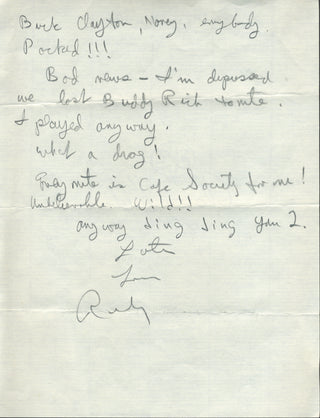 Buck Clayton, Nancy, everybody.
Packed!!!
Bad news – I'm depressed
we lost Buddy Rich tonite.
I played anyway.
What a drag!
Every nite is Cafe Society for me!
Unbelievable Wild!!
anyway ding ding you 2.
Later
Love
Rudy